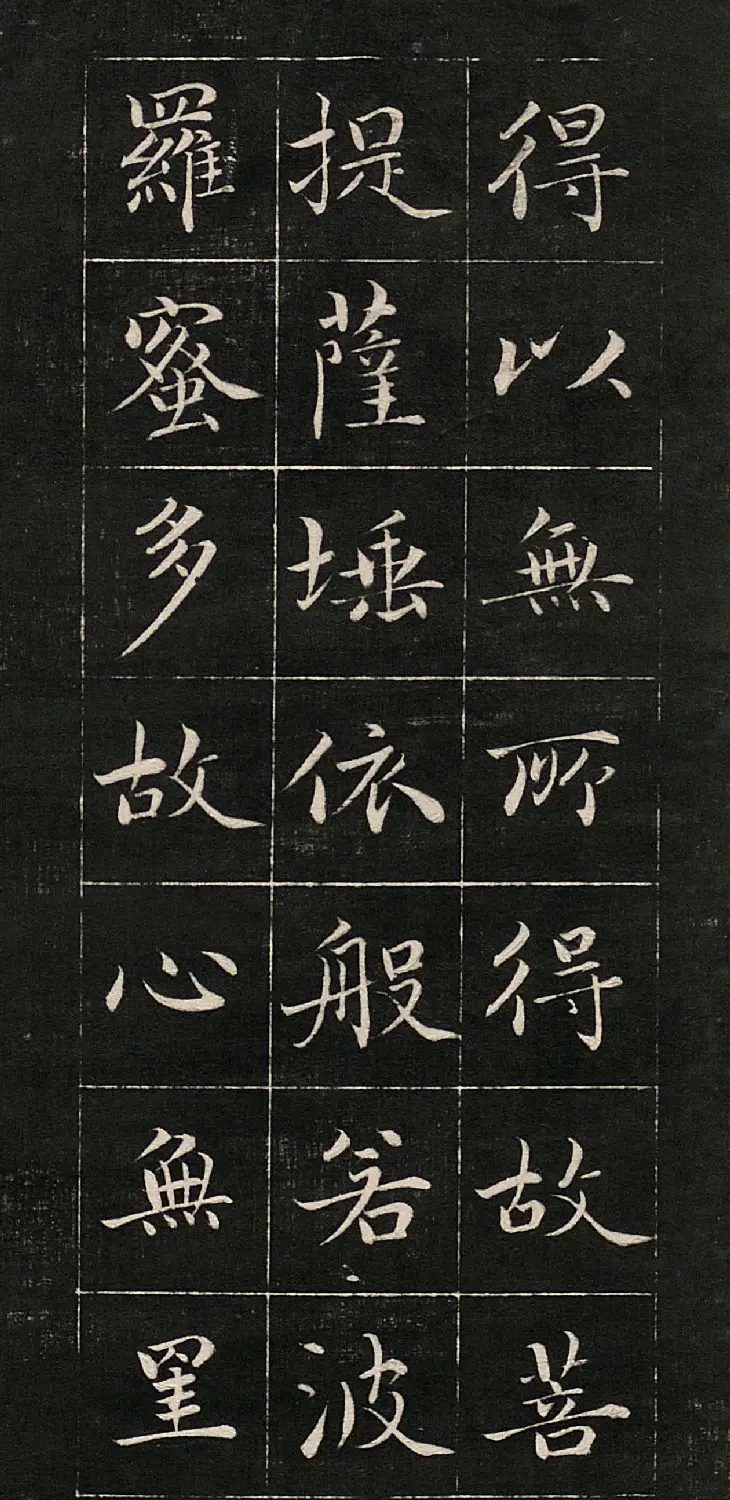 得以無所得故菩
提薩埵依般若波
羅蜜多故心無罣